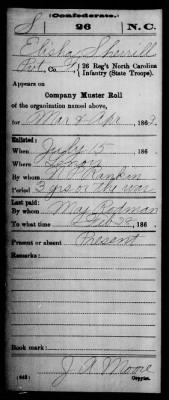 (Confederate.)
S 26 N.C.
Elisha Sherrill
Pvt., Co. F, 26 Reg't North Carolina
Infantry (State Troops).
Appears on
Company Muster Roll
of the organization named above,
for Mar & Apr, 186
Enlisted:
When July 15, 186
Where Lenoir
By whom N P Rankin
Period 3 yrs or the war
Last paid:
By whom Maj Redman
To what time Feb 28, 186
Present or absent Present
Remarks:
Book mark:
J A Moore
(642) Copyist.